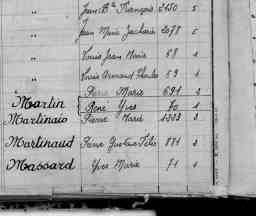 " Jean Bte François 2450 s
" Jean Marie Zacharie 2078 s
" Louis Jean Marie 58 s
" Louis Armand Charles 59 s
" Pierre Marie 691 s
Martin René Yves 70 s
Martinais Pierre Marie 1303 s
Martinaud Pierre Gustave Félix 881 s
Massard Yves Marie 71 s